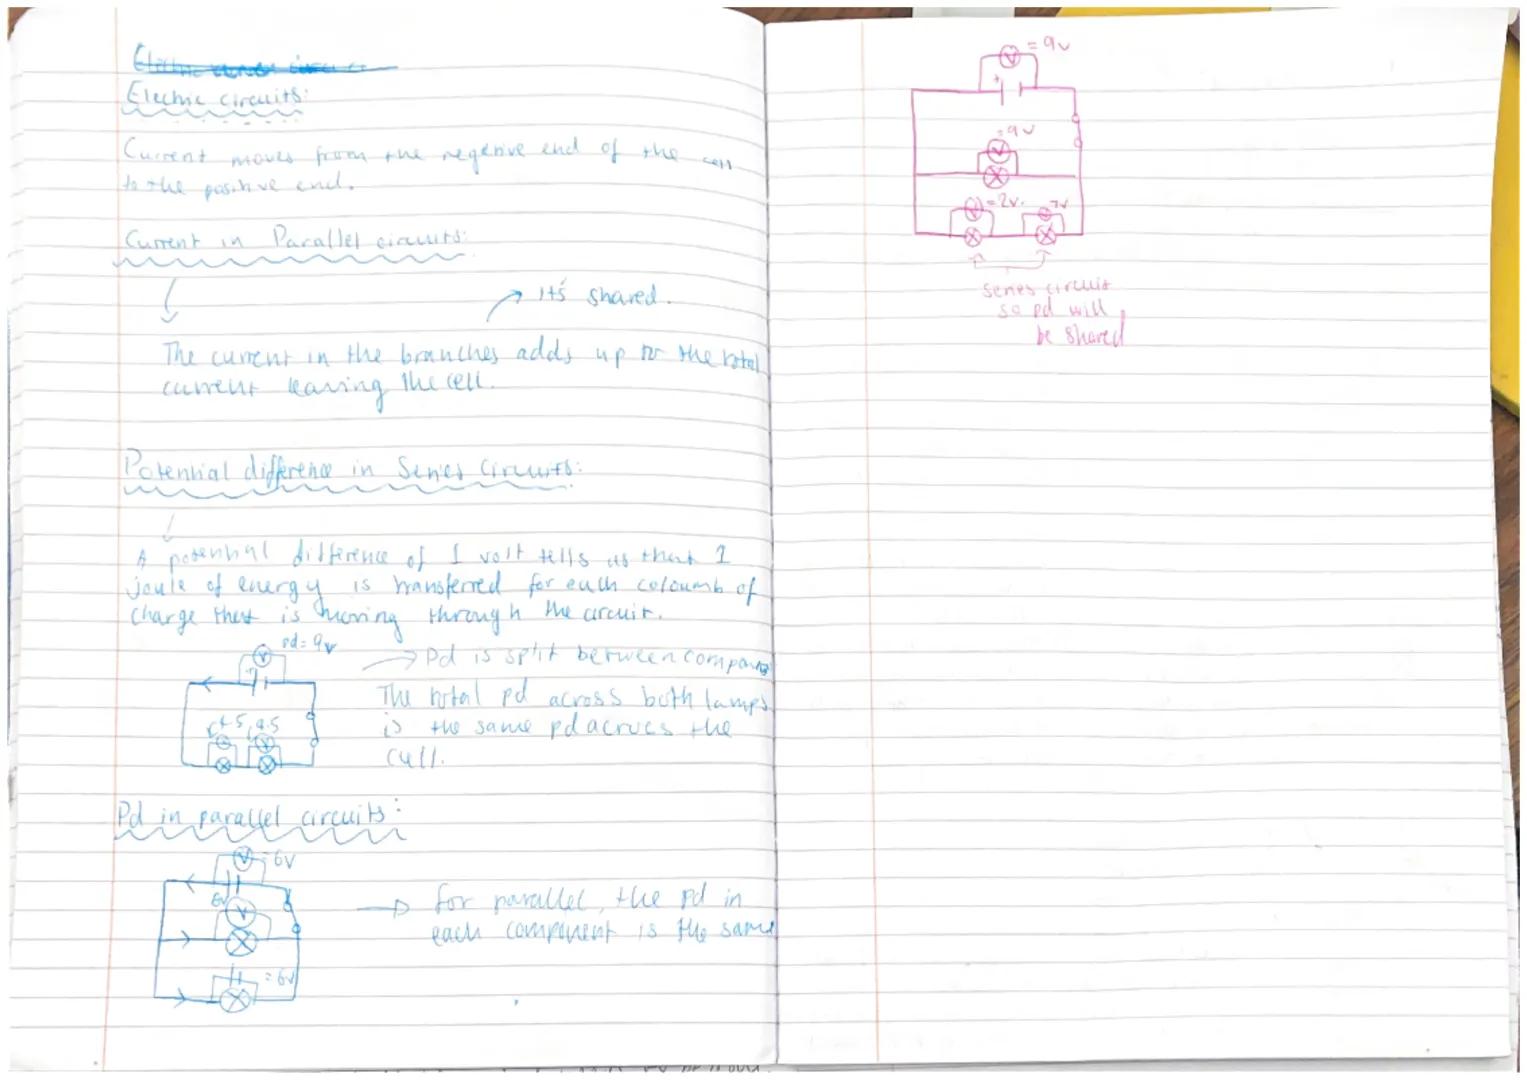 Electric circuits:
Current moves from the negative end of the cell
to the positive end.
Current in Parallel circuits:
It's shared.
The current in the branches adds up to the total
current leaving the cell.
Potential difference in Series Circuits:
A potential difference of 1 volt tells us that 1
joule of energy is transferred for each coloumb of
charge that is moving through the circuit.
pd = 9v
V
Pd is split between
The total pd across both lamps
is the same pd acrucs the
cull.
4.5 4.5
V
Pd in parallel circuits:
V = 6V
6v
V
for parallel, the pd in
each component is the same
= 6v
V = 9v
= 9v
V
V = 2v. 7v
series circuit
so pd will
be shared